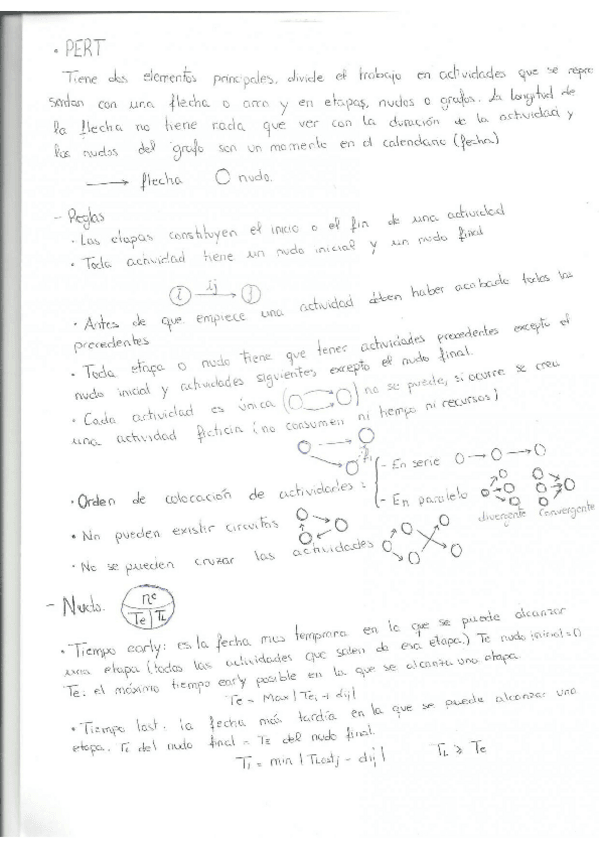 • PERT
Tiene dos elementos principales, divide el trabajo en actividades que se repre
sentan con una flecha o arco y en etapas, nudos o grafos. La longitud de
la flecha no tiene nada que ver con la duración de la actividad y
los nudos del grafo son un momento en el calendario (fecha)
→ flecha ○ nudo.
- Reglas
• Las etapas constituyen el inicio o el fin de una actividad
• Toda actividad tiene un nudo inicial y un nudo final
i ij j
• Antes de que empiece una actividad deben haber acabado todas las
precedentes
• Toda etapa o nudo tiene que tener actividades precedentes excepto el
nudo inicial y actividades siguientes excepto el nudo final.
• Cada actividad es única ( ) no se puede, si ocurre se crea
una actividad ficticia (no consumen ni tiempo ni recursos)
• Orden de colocación de actividades =
- En serie
- En paralelo
divergente convergente
• No pueden existir circuitos
• No se pueden cruzar las actividades
- Nudo.
nº
Te TL
• Tiempo early: es la fecha mas temprana en la que se puede alcanzar
una etapa (todas las actividades que salen de esa etapa.) Te nudo inicial = 0
Te: el máximo tiempo early posible en la que se alcanza una etapa
Te = Max | Tei + dij |
• Tiempo last: la fecha más tardía en la que se puede alcanzar una
etapa. TL del nudo final = TE del nudo final.
Ti = min | TLastj - dij | TL ≥ Te